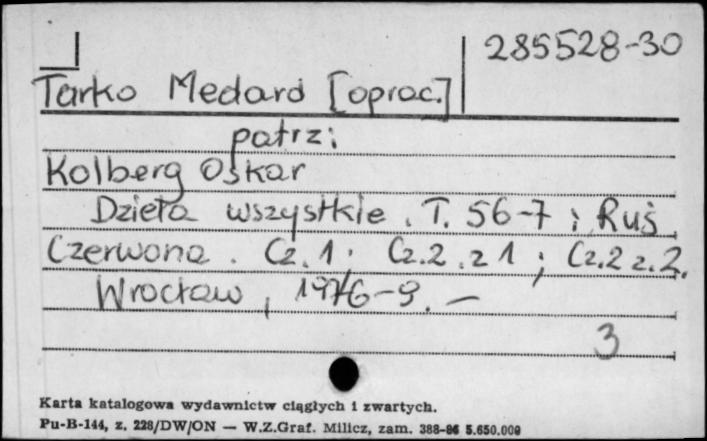 285528-30
Tarko Medard [oprac.]
patrz:
Kolberg Oskar
Dzieła wszystkie. T. 56-7; Ruś
Czerwona. Cz. 1. Cz. 2. z 1; Cz. 2 z. 2.
Wrocław, 1976-9. —
3
Karta katalogowa wydawnictw ciągłych i zwartych.
Pu-B-144, z. 228/DW/ON — W.Z.Graf. Milicz, zam. 388-86 5.650.000